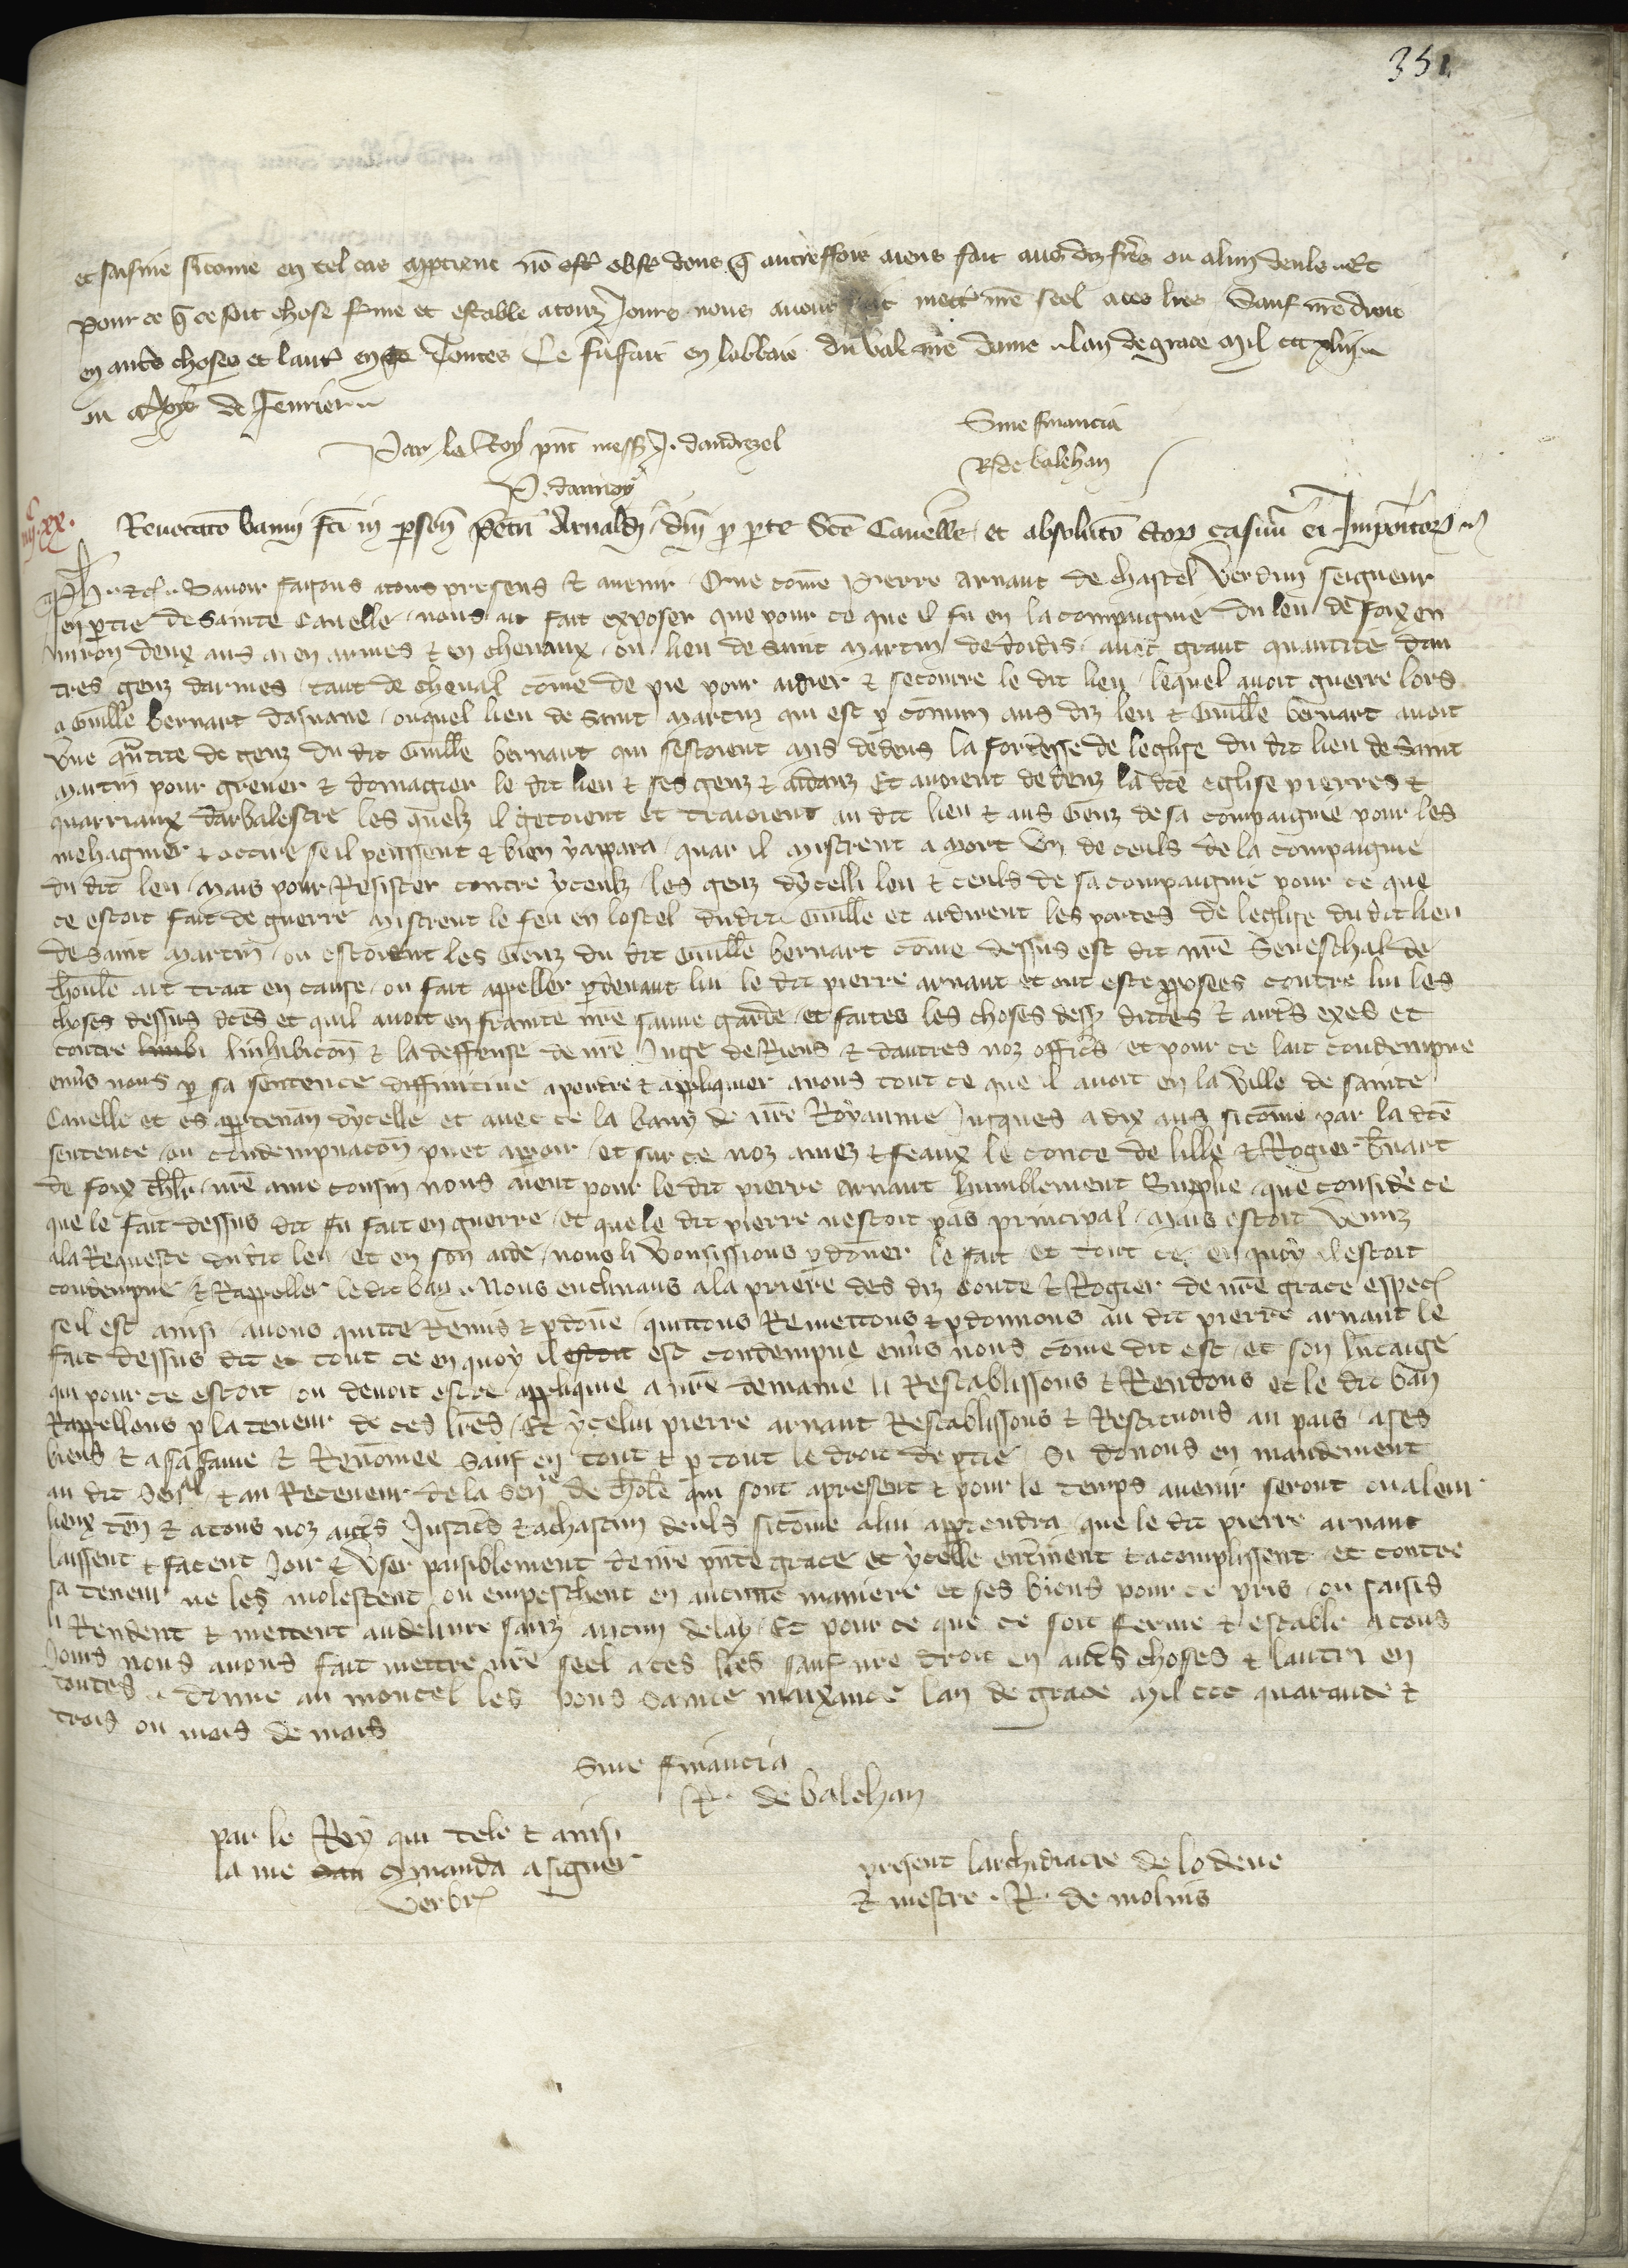 351.
et saisine sicome en tel cas appartient no ostr obstr dons q autreffois aiens fait aus diz freres ou a lun deuls. Et
pour ce q ce soit chose ferme et estable a touz jours nous avons fait mettre nre seel a ces lres Sauf nre droit
en autres choses et lautr en toutes Ce fu fait en labbaie du Val nre dame lan de grace mil ccc xliij
ou moys de Fevrier
Par le Roy pnt mess J. dandrezel
P. daunoy
Sine financia
R de balehan
Revocatō banni fcī in persona Petri Arnaldi dni p pte Sce Cavelle et absolutō ctor casuum ei Impositor
Ph. etc. Savoir faisons a touz presens & avenir Que come Pierre Arnaut de chastel Verdun seigneur
en ptie de Sainte Cavelle nous ait fait exposer que pour ce que il fu en la compaignie du leu de Foix en
viron deux ans a en armes & en chevaux ou lieu de saint Martin de doidis avec grant quantite dau
tres genz darmes tant de cheval come de pie pour aidier & secourre le dit leu lequel avoit guerre lors
a Guille bernart dasnave ouquel lieu de saint Martin qui est p comun aus diz leu & Guille bernart avoit
une qntite de genz du dit Guille bernart qui sestoient mis dedens la forteresse de leglise du dit lieu de Saint
Martin pour grever & domagier le dit leu & ses genz & aidanz Et avoient dedenz la dte eglise pierres &
quarriaux darbalestre les quelz il getoient et traioient au dit leu & aus Genz de sa compaignie pour les
mehagnier & occire se il peussent & bien y appara quar il mistrent a mort un de ceuls de la compaignie
du dit leu Mais pour Resister contre yceulz les genz dycelli leu & ceuls de sa compaignie pour ce que
ce estoit fait de guerre mistrent le feu en lostel dudit Guille et ardirent les portes de leglise du dit lieu
de Saint Martin ou estoient les Genz du dit Guille bernart come dessus est dit nre Seneschal de
thoule ait trait en cause ou fait appeller p devant lui le dit pierre arnaut et ont este pposees contre lui les
choses dessus dtes et quil avoit enfrainte nre sauve garde et faites les choses dess dittes & autres exes et
contre linhibicon & la deffense de nre Juge de Riens & dautres noz officrs et pour ce lait condempne
envs nous p sa sentence diffinitive a perdre & appliquer a nous tout ce que il avoit en la Ville de sainte
Cavelle et es apptenan dycelle et avec ce la bany de nre Royaume jusques a dix ans sicome par la dte
sentence ou condempnacon puet apparoir et sur ce noz amez & feaux le conte de lille & Rogier Bnart
de foix chlr nre ame cousin nous aient pour le dit pierre arnaut humblement Supplie que considere ce
que le fait dessus dit fu fait en guerre et que le dit pierre nestoit pas principal Mais estoit venuz
a la Requeste du dit leu et en son aide nous li voussissions pdoner le fait et tout ce en quoy il estoit
condempne & Rappeller le dit ban Nous enclinans a la priere des diz Conte & Rogier de nre grace espec
se il est ainsi avons quitte Remis & pdone quittons Remettons & pdonnons au dit pierre arnaut le
fait dessus dit et tout ce en quoy il estoit est condempne envs nous come dit est et son hitaige
qui pour ce estoit ou devoit estre applique a nre demaine li Restablissons & Rendons et le dit ban
Rappellons p la teneur de ces lres Et ycelui pierre arnaut Restablissons & Restituons au pais a ses
biens & a sa fame & Renomee Sauf en tout & p tout le droit de ptie Si donons en mandement
au dit Senal & au Receveur de la Senie de thole qui sont a present & pour le temps avenir seront ou a leur
lieux ten & a tous noz autrs Justicrs & a chascun deuls sicome a lui apptendra que le dit pierre arnaut
laissent & facent Jouir & User paisiblement de nre pnte grace et ycelle enterinent & acomplissent et contre
sa teneur ne les molestent ou empeschent en aucune maniere et ses biens pour ce pris ou saisis
li Rendent & mettent au delivre sanz aucun delay Et pour ce que ce soit ferme & estable a tous
Jours nous avons fait mettre nre seel a ces lres sauf nre droit en autrs choses & lautri en
toutes. donne au moncel les pons Sainte maixance lan de grace Mil ccc quarante &
trois ou mois de mars
Sine financia
R. de balehan
par le Roy qui tele & ainsi
la me manda a signer
Verbr
present larchidiacre de lodeve
& mestre R. de molins